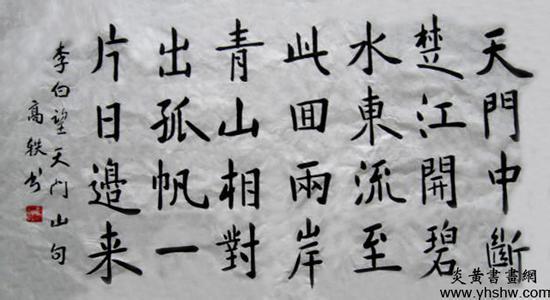 天門中斷
楚江開碧
水東流至
此回兩岸
青山相對
出孤帆一
片日邊来
李白望天门山句
高轶书
炎黄書畫網
www.yhshw.com